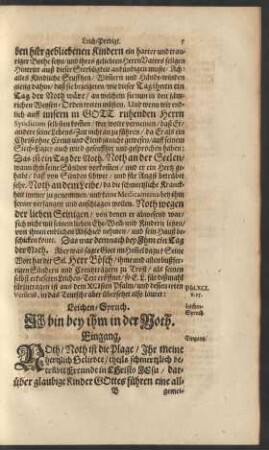 Leich-Predigt. 5
ben hier gebliebenen Kindern ein harter und trau-
riger Bothe seyn / und ihres geliebten Herrn Vaters seligen
Hintrit aus dieser Sterbligkeit ankündigen muste. Ach
alles Kindliche Seuffzen / Wintzeln und Hände-winden
zeigt dahin / daß sie bezeigeten / wie dieser Tag ihnen ein
Tag der Noth wäre / an welchem sie nun in den jäm-
rlichen Weisen-Orden treten müsten. Und wenn wir end-
lich auff unsern in GOTT ruhenden Herrn
Syndicum selbsten kom̃en / wer wolte verneinen / daß Er
anders seine Lebens-Zeit nicht an zu führen / da Er als ein
Christ sein Creutz und Elends nicht gewesen / auff seinem
Siech-Lager auch wird geseuffzet und gesprochen haben:
Das ist ein Tag der Noth. Noth an der Seelen /
wann ich meine Sünden vorkom̃en / und er ein Hertz ge-
habt / daß von Sünden schwer / und für Angst bersten
sehr. Noth an dem Leibe / da die schmertzliche Kranck-
heit immer zu genommen / und keine Medicamenta bey ihm
ferner verfangen und anschlagen wollen. Noth wegen
der lieben Seinigen / von denen er abwesend war /
sich nicht mit seinem lieben Ehe-Weib und Kindern letzen /
von ihnen ordentlichen Abschied nehmen / und sein Haus be-
schicken konte. Das war dennoch bey Ihm ein Tag
der Noth. Aber was saget Gott im Himmel dazu? Seine
Wort hat der Sel. Herr Bösch / ihme und allen bußfer-
tigen Sündern und Creutzträgern zu Trost / als seinen
selbst erkohrnen Leichen-Text eröffnet / so E. L. für dißmahl
fürzutragen ist aus dem XCI sten Psalm / und dessen 15ten
versicul, in das Teutsch also übersetzet also lautet:
Psal. XCI.
v. 15.
Leichen-Spruch.
Leichen-
Spruch.
Ich bin bey ihm in der Noth.
Eingang.
Eingang.
NOth / Noth ist die Plage / Ihr meine
hertzlich Geliebte / theils schmertzlich be-
trübte Freunde in Christo JEsu / dar-
über gläubige Kinder GOttes führen eine all-
B gemei-